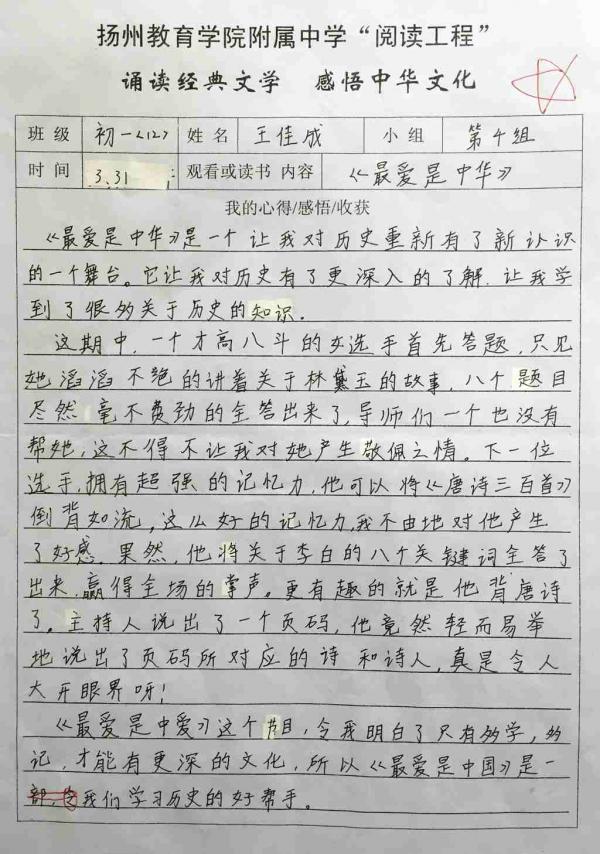 扬州教育学院附属中学“阅读工程”
诵读经典文学 感悟中华文化
班级 初一<12> 姓名 王佳成 小组 第4组
时间 3.31 : 观看或读书 内容 《最爱是中华》
我的心得/感悟/收获
《最爱是中华》是一个让我对历史重新有了新认识
的一个舞台。它让我对历史有了更深入的了解.让我学
到了很多关于历史的知识.
这期中,一个才高八斗的女选手首先答题,只见
她滔滔不绝的讲着关于林黛玉的故事,八个题目
尽然毫不费劲的全答出来了,导师们一个也没有
帮她,这不得不让我对她产生敬佩之情。下一位
选手,拥有超强的记忆力,他可以将《唐诗三百首》
倒背如流,这么好的记忆力,我不由地对他产生
了好感.果然,他将关于李白的八个关键词全答了
出来,赢得全场的掌声。更有趣的就是他背唐诗
了.主持人说出了一个页码,他竟然轻而易举
地说出了页码所对应的诗和诗人,真是令人
大开眼界呀!
《最爱是中爱》这个节目,令我明白了只有多学,多
记,才能有更深的文化,所以《最爱是中国》是一
部,令我们学习历史的好帮手。